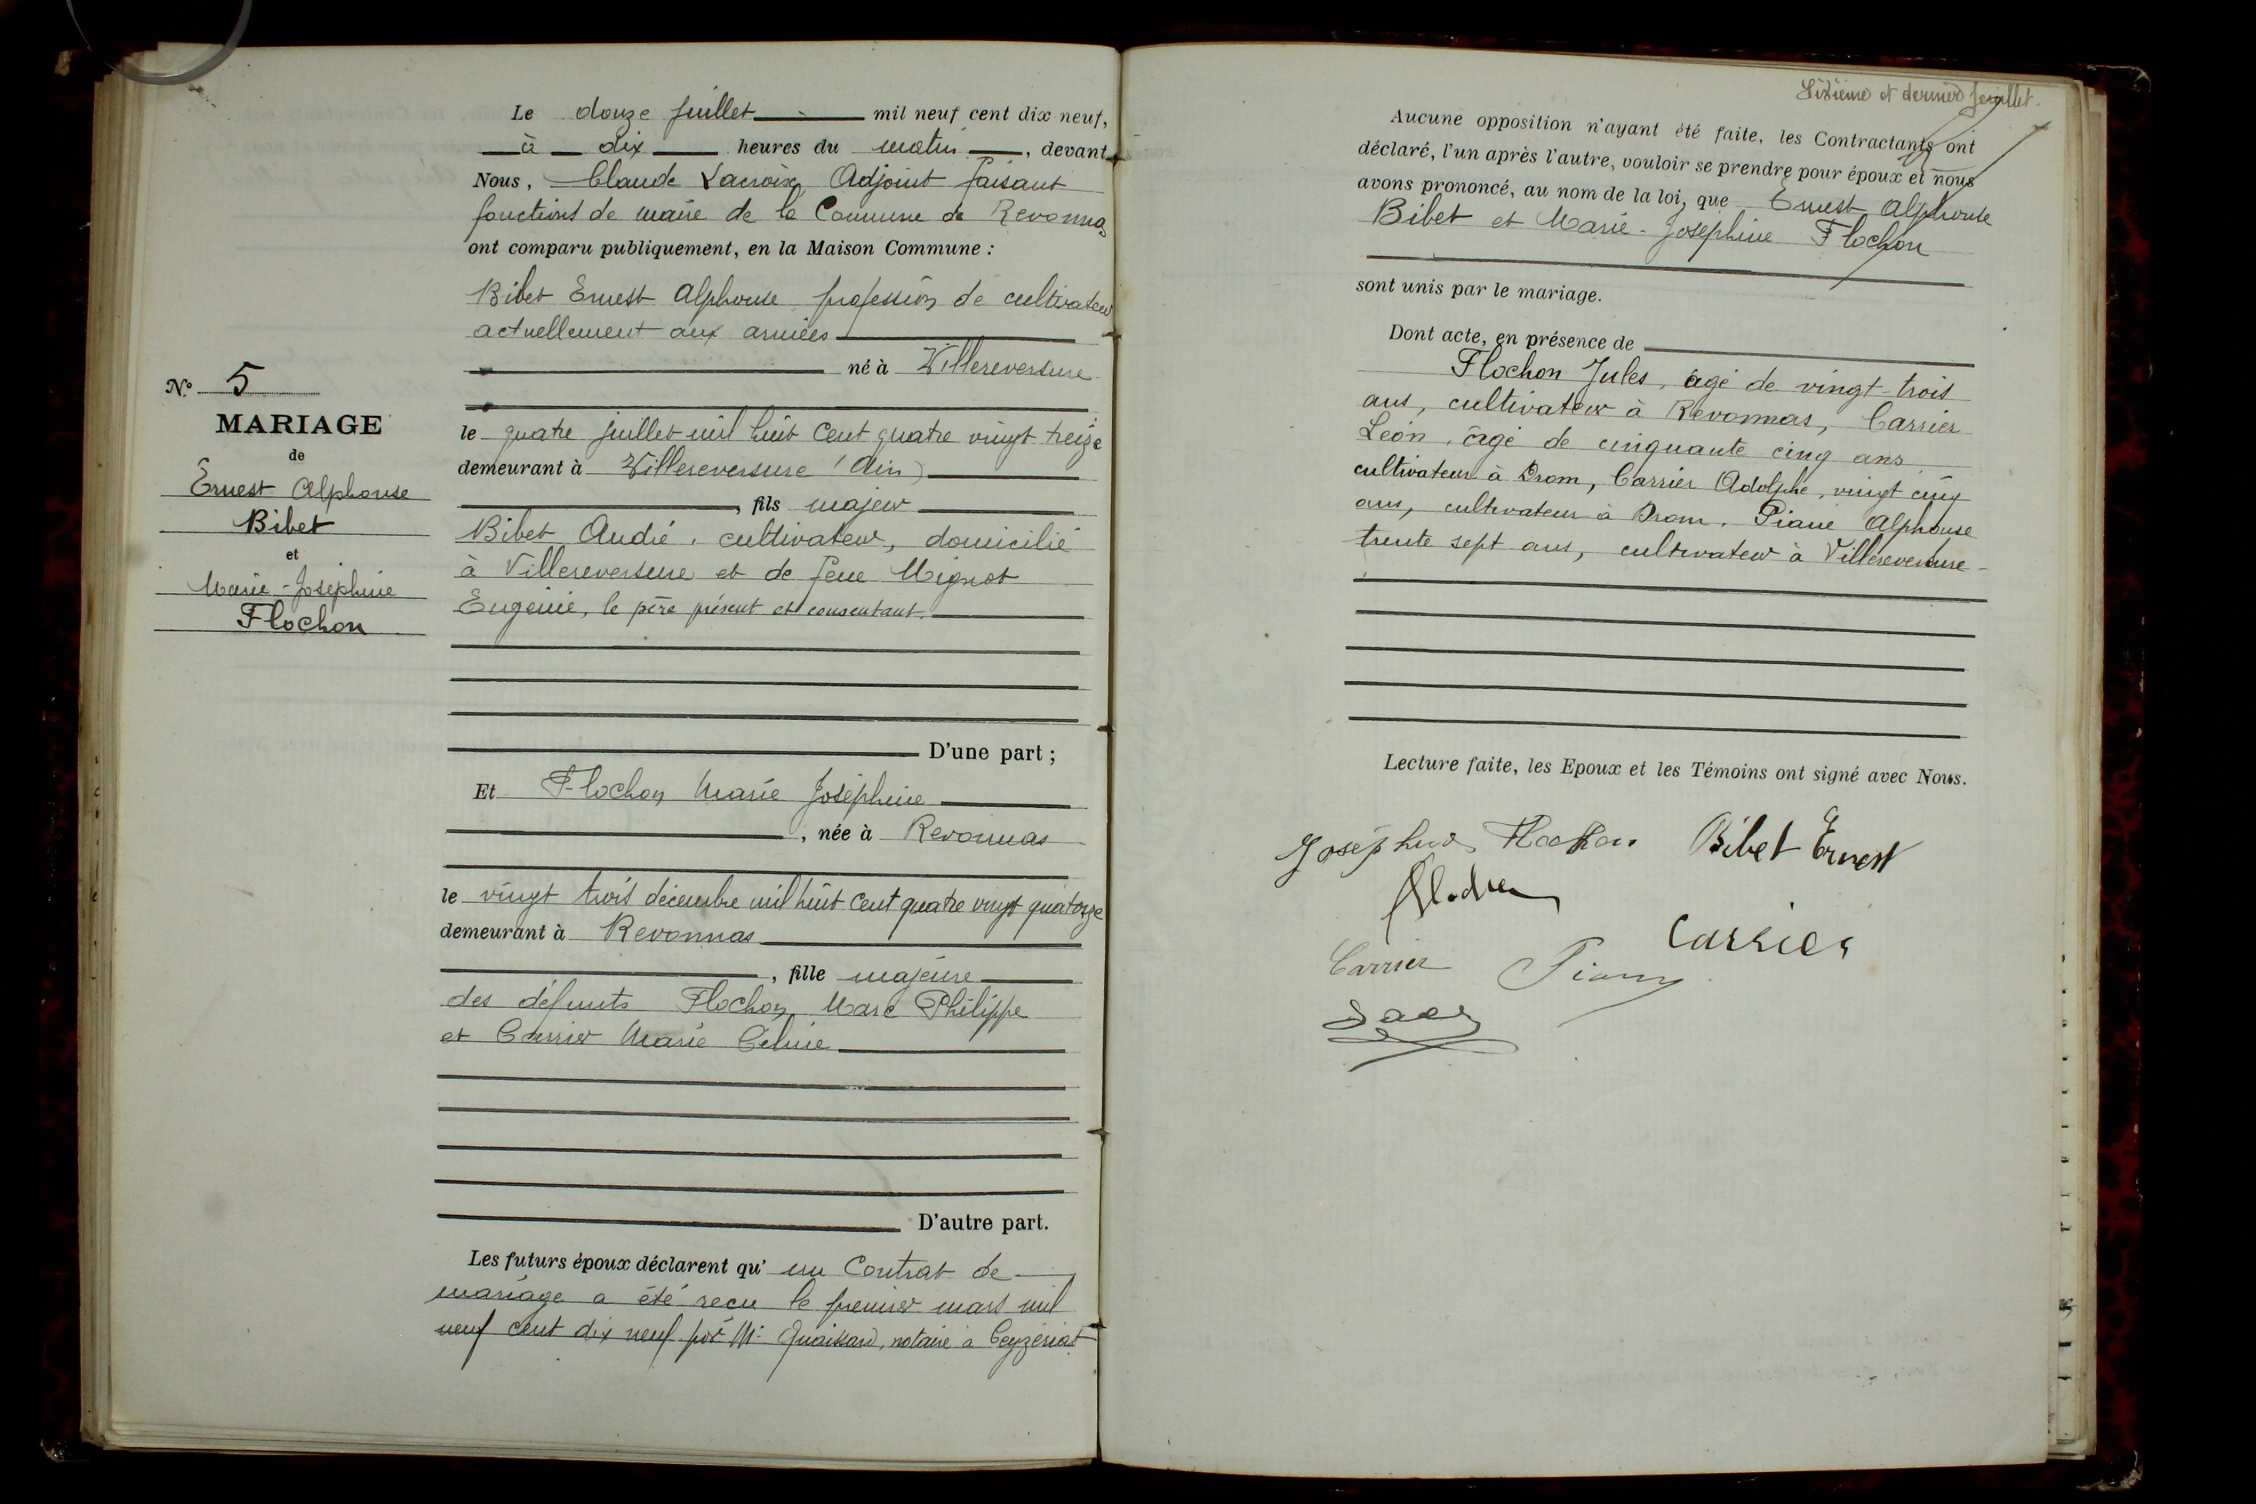 Le douze juillet mil neuf cent dix neuf,
à dix heures du matin, devant
Nous, Claude Lacroix Adjoint faisant
fonctions de maire de la Commune de Revonnas
ont comparu publiquement, en la Maison Commune :
Bibet Ernest Alphonse profession de cultivateur
actuellement aux armées
né à Villereversure
le quatre juillet mil huit cent quatre vingt treize
demeurant à Villereversure (Ain)
, fils majeur
Bibet André, cultivateur, domicilié
à Villereversure et de feue Mignot
Eugénie, le père présent et consentant.
D'une part ;
Et Flochon Marie Joséphine
, née à Revonnas
le vingt trois décembre mil huit cent quatre vingt quatorze
demeurant à Revonnas
, fille majeure
des défunts Flochon Marc Philippe
et Carrier Marie Célinie
D'autre part.
Les futurs époux déclarent qu' un Contrat de
mariage a été reçu le premier mars mil
neuf cent dix neuf par Me notaire à Ceyzériat
No 5
MARIAGE
de
Ernest Alphonse
Bibet
et
Marie-Joséphine
Flochon
Sixième et dernier feuillet.
Aucune opposition n'ayant été faite, les Contractants ont
déclaré, l'un après l'autre, vouloir se prendre pour époux et nous
avons prononcé, au nom de la loi, que Ernest Alphonse
Bibet et Marie-Joséphine Flochon
sont unis par le mariage.
Dont acte, en présence de
Flochon Jules, âgé de vingt-trois
ans, cultivateur à Revonnas, Carrier
Léon, âgé de cinquante cinq ans
cultivateur à Drom, Carrier Adolphe, vingt cinq
ans, cultivateur à Drom. Alphonse
trente sept ans, cultivateur à Villereversure
Lecture faite, les Epoux et les Témoins ont signé avec Nous.
Joséphine Flochon Bibet Ernest
Carrier
Carrier